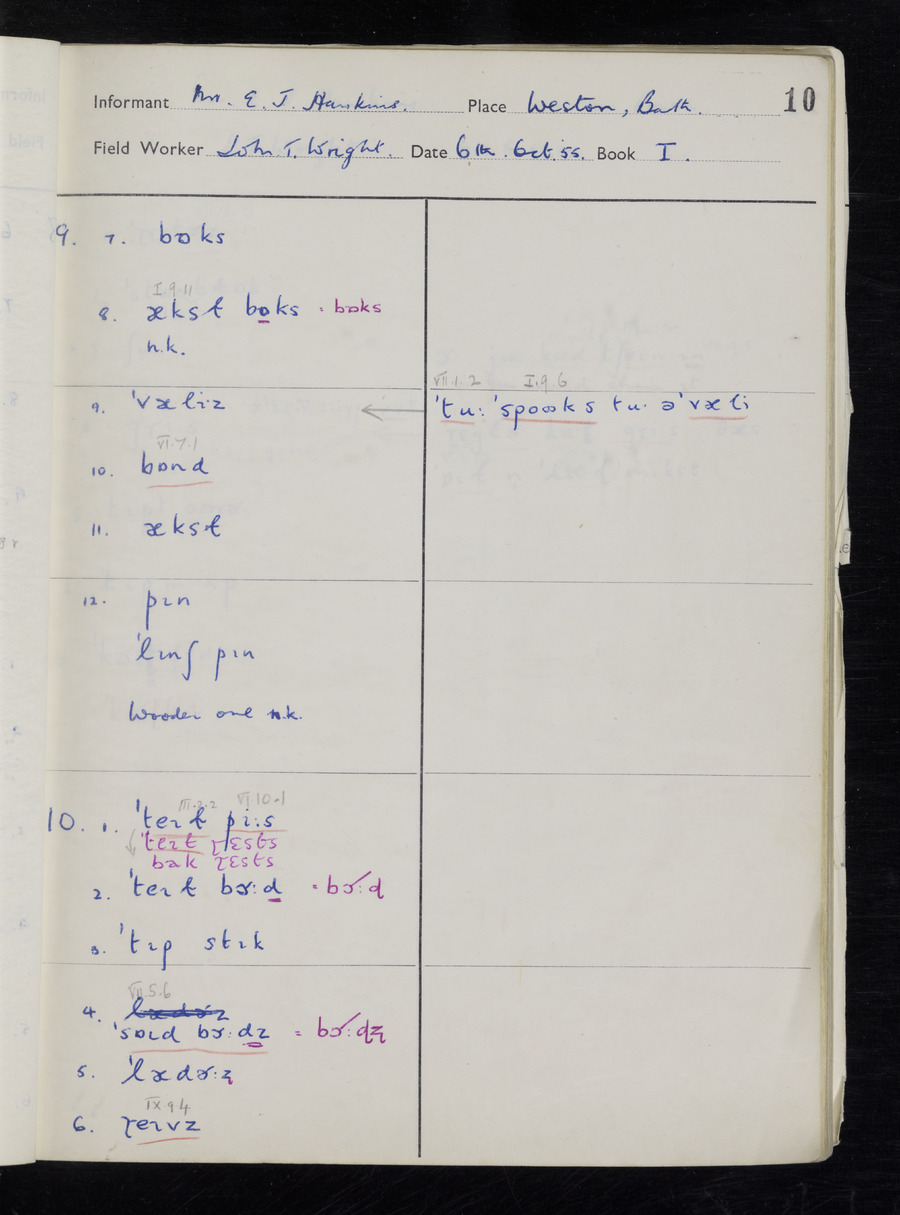 Informant Mr. E. J. Hawkins. Place Weston, Bath. 10
Field Worker John T. Wright. Date 6th Oct. 55. Book I.
9. 7. bɒks
I.9.11
8. ækst bɒks = bɒks
n.k.
VII.1.2 I.9.6
9. ˈvæliːz ˈtuː ˈspoʊks tuˑ ə ˈvæli
VI.7.1
10. bɒnd
11. ækst
12. pɪn
ˈlɪnʃ pɪn
Wooden one n.k.
III.2.2 VI.10.1
10. 1. ˈteɪɫ piːs
ˈteɪɫ ɽɛsts
bak ɽɛsts
2. ˈteɪɫ bɔː˞d = bɔː˞ɖ
3. ˈtɪp stɪk
VII.5.6
4.
ˈsɒɪd bɔː˞dz = bɔː˞ɖʐ
5. ˈlædə˞ːʐ
IX.9.4
6. ɽeɪvz